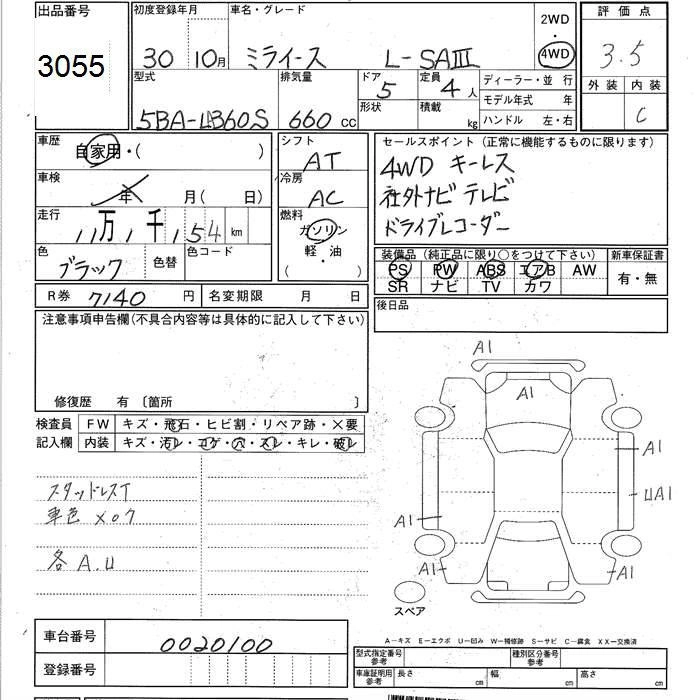 出品番号
3055
初度登録年月
30 10月
車名・グレード
ミライース L-SAⅢ
2WD
4WD
評価点
3.5
型式
5BA-LA360S
排気量
660 CC
ドア
5
形状
定員
4 人
積載
kg
ディーラー・並 行
モデル年式 年
ハンドル 左・右
外装 内装
C
車歴
自家用・( )
車検
年 月( 日)
走行
11万 1千 154 km
色
ブラック
色替
色コード
シフト
AT
冷房
AC
燃料
ガソリン
軽・油
( )
セールスポイント(正常に機能するものに限ります)
4WD キーレス
社外ナビ テレビ
ドライブレコーダー
装備品(純正品に限り○をつけて下さい)
新車保証書
PS PW ABS エアB AW
SR ナビ TV カワ
有・無
R券 7140 円
名変期限 月 日
後日品
注意事項申告欄(不具合内容等は具体的に記入して下さい)
修復歴 有 〔箇所 〕
検査員
記入欄
FW キズ・飛石・ヒビ割・リペア跡・×要
内装 キズ・汚レ・コゲ・穴・スレ・キレ・破レ
スタッドレスT
車色 X07
各 A.U
A1
A1
A1
UA1
A1
A1
A1
スペア
車台番号
0020100
登録番号
A―キズ E―エクボ U―凹み W―補修跡 S―サビ C―腐食 XX―交換済
型式指定番号
参考
種別区分番号
参考
車庫証明用
参考
長さ cm
幅 cm
高さ cm